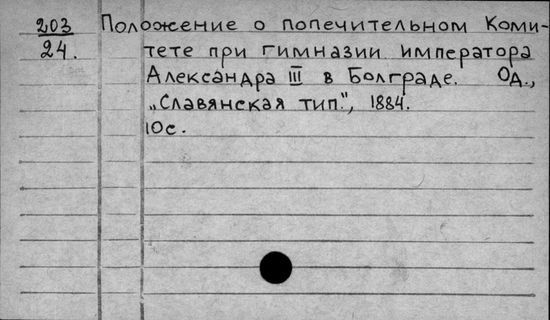 203 Положение о попечительном Коми-
24. тете при гимназии императора
Александра III в Болграде. Од.,
„Славянская тип.", 1884.
10с.